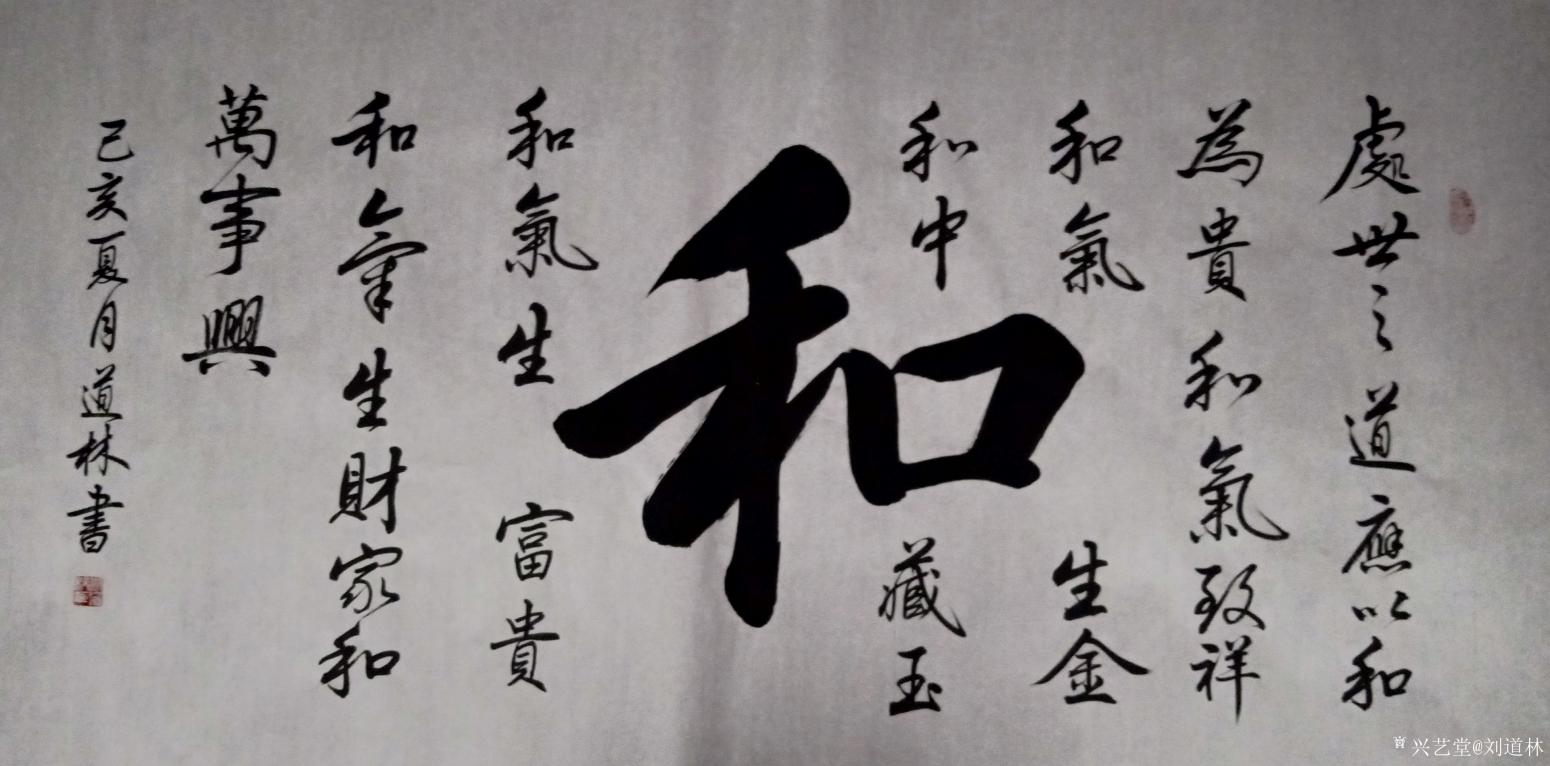 處世之道應以和
為貴和氣致祥
和氣生金
和中藏玉
和
和氣生富貴
和氣生財家和
萬事興
己亥夏月道林書
兴艺堂@刘道林